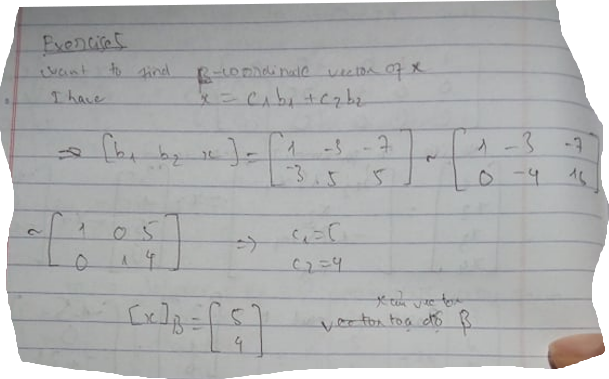 Exercise 5
want to find β-coordinate vector of x
I have x = c₁b₁ + c₂b₂
⇒ [b₁ b₂ x] = [1 -3 -7; -3 5 5] ~ [1 -3 -7; 0 -4 16]
~ [1 0 5; 0 1 4] ⇒ c₁=5
c₂=4
[x]β = [5; 4] vector toạ độ β